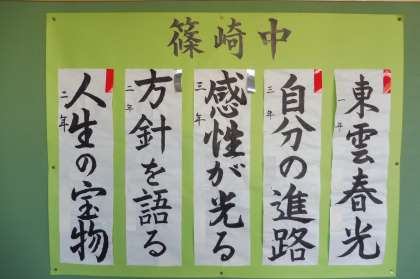 篠崎中
東雲春光
一年
自分の進路
三年
感性が光る
三年
方針を語る
二年
人生の宝物
二年